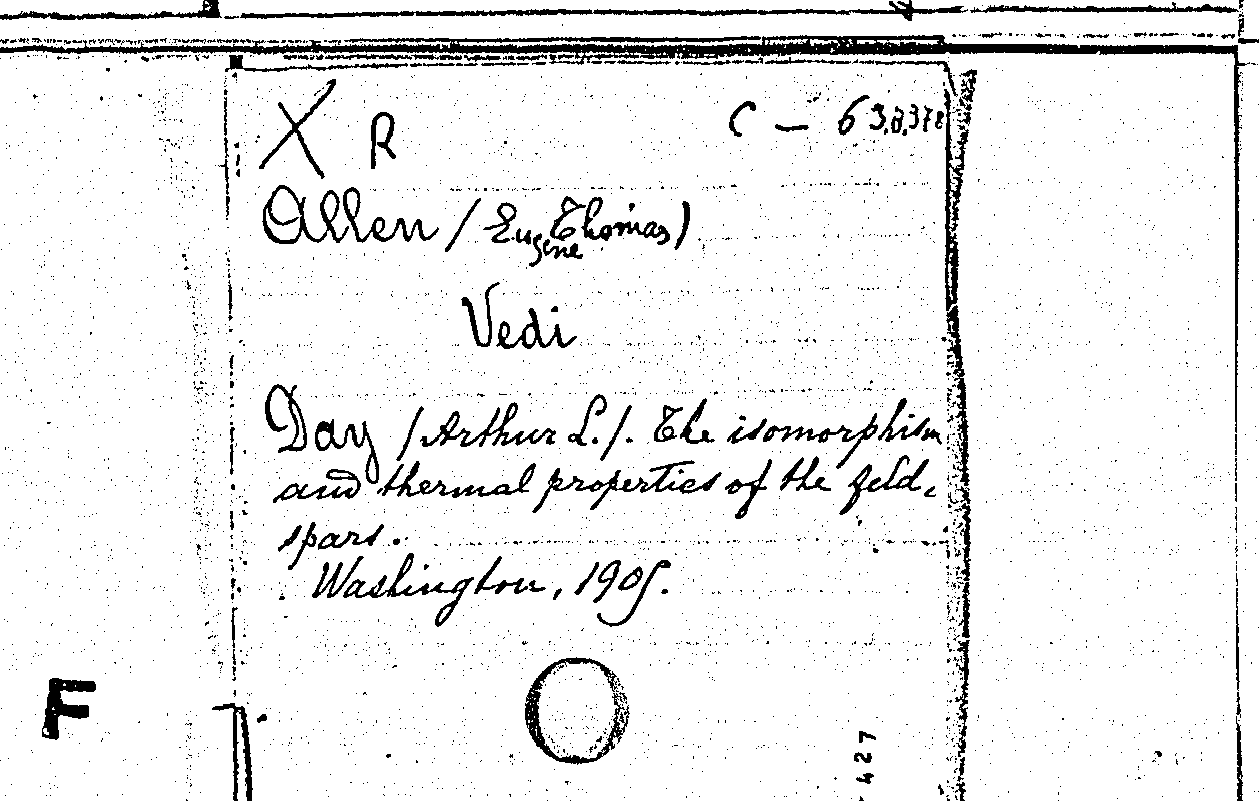 X R
C – 63.8.378
Allen / Eugene Thomas)
Vedi
Day /Arthur L./. The isomorphism
and thermal properties of the feld-
spars.
Washington, 1905.
F
427